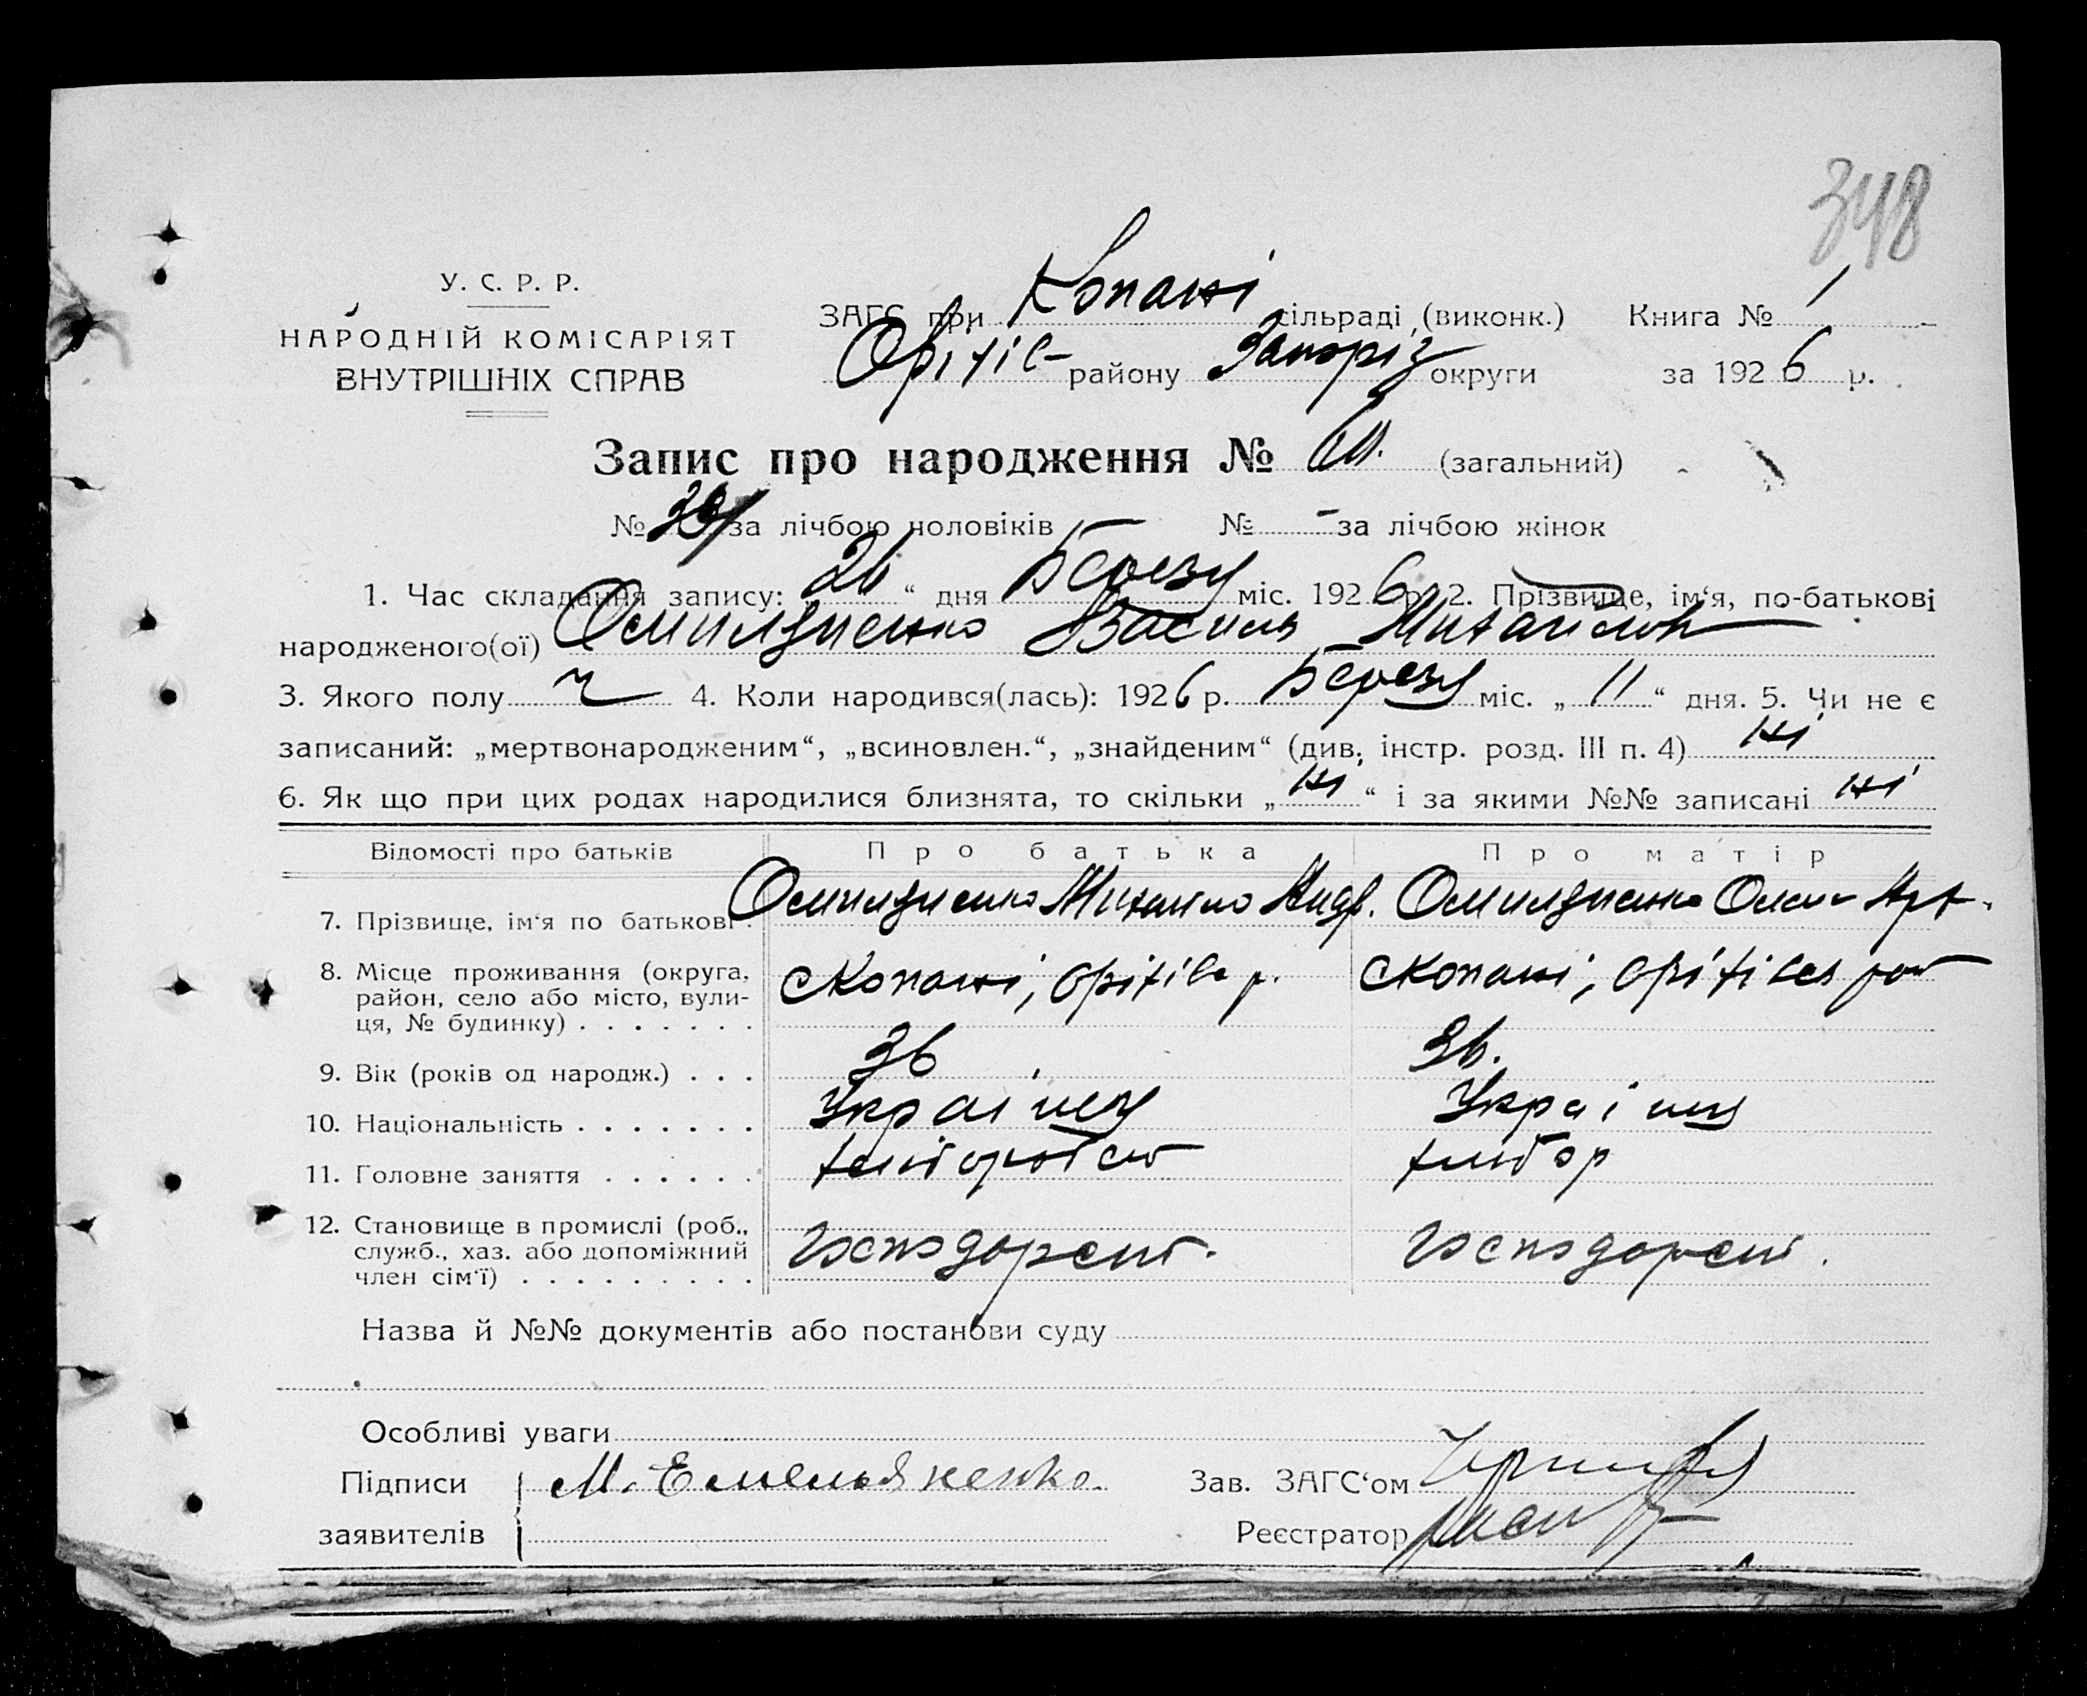 348
У. С. Р. Р.
НАРОДНІЙ КОМІСАРІЯТ
ВНУТРІШНІХ СПРАВ
ЗАГС при Копані сільраді (виконк.) Книга № 1
Оріхів- району Запоріз округи за 1926 р.
Запис про народження № (загальний)
№ за лічбою чоловіків № - за лічбою жінок
1. Час складання запису: „26“ дня Березня міс. 1926 р. 2. Прізвище, ім‘я, по-батькові
народженого(ої) Омиляненко Василь Михайлов
3. Якого полу ч 4. Коли народився(лась): 1926 р. Березня міс. „11“ дня. 5. Чи не є
записаний: „мертвонародженим“, „всиновлен.“, „знайденим“ (див. інстр. розд. III п. 4) ні
6. Як що при цих родах народилися близнята, то скільки „ні“ і за якими №№ записані ні
Відомості про батьків Про батька Про матір
7. Прізвище, ім‘я по батькові . Омиляненко Михайло Андр. Омиляненко Олена
8. Місце проживання (округа, район, село або місто, вулиця, № будинку) . . . . . . . с Копані, Оріхівс р. с Копані, Оріхівск рай
9. Вік (років од народж.) . . . 36 36.
10. Національність . . . . . . . Українц Українц
11. Головне заняття . . . . . . хлібороб хлібор
12. Становище в промислі (роб., служб., хаз. або допоміжний член сім‘ї) . . . . . . . . . Господарст. Господарст.
Назва й №№ документів або постанови суду
Особливі уваги
Підписи М. Емельяненко. Зав. ЗАГС‘ом
заявителів Реєстратор